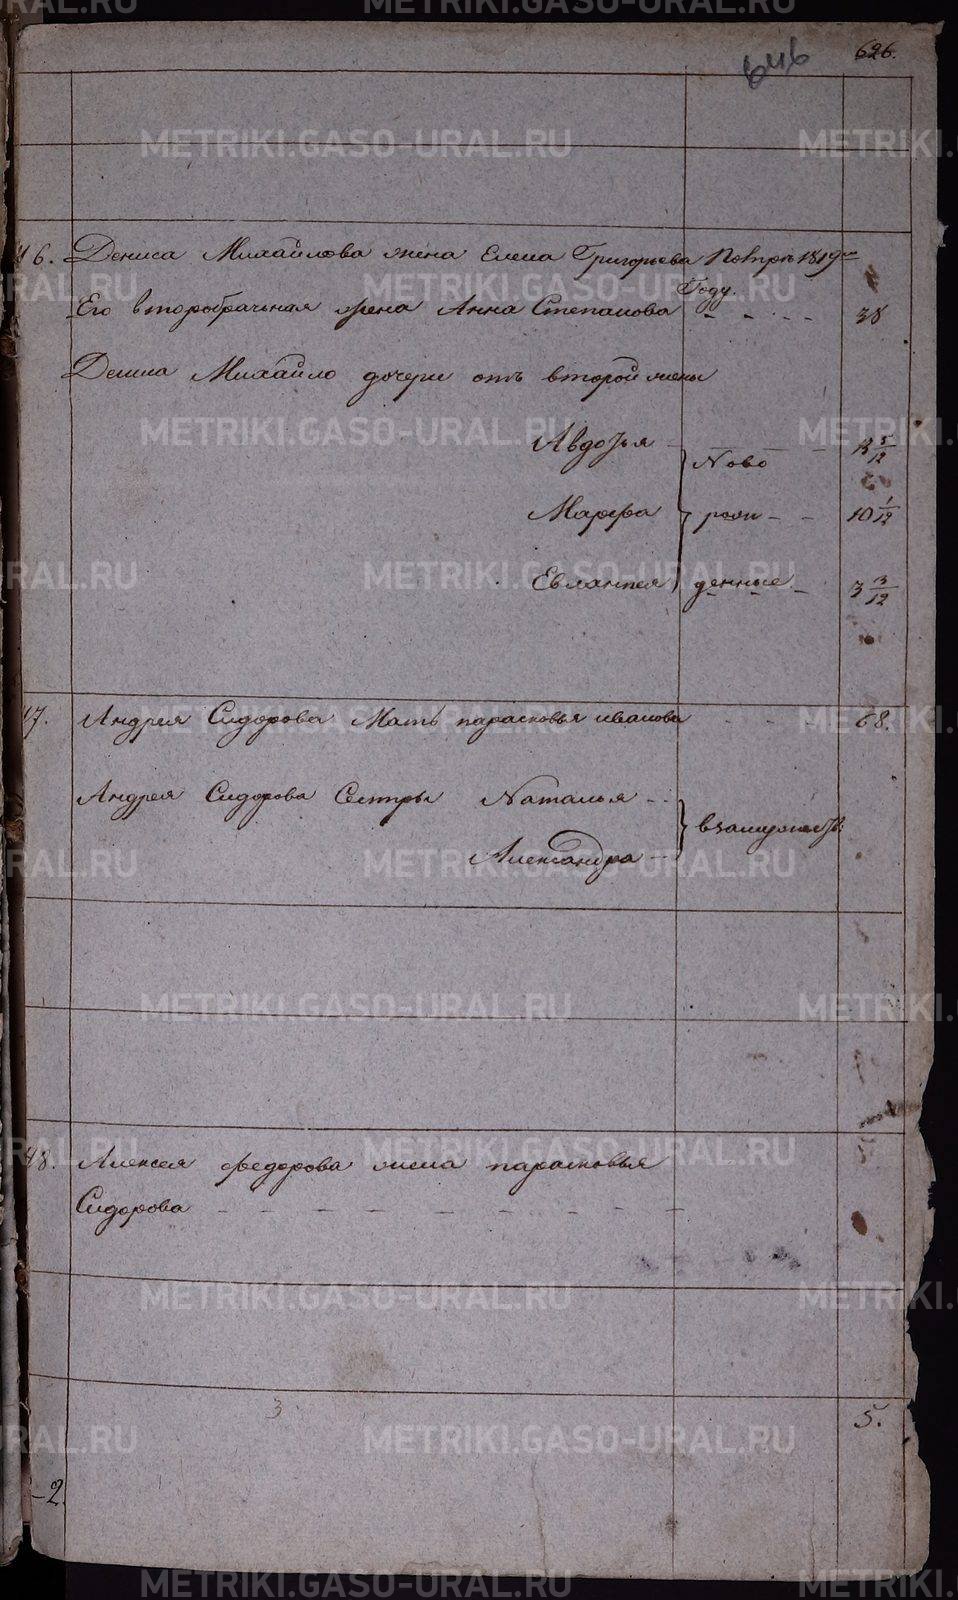 646 626.
46. Дениса Михайлова жена Елена Григорьева Помре 1819го
Году
Его второбрачная жена Анна Степанова - - - - 38
Дениса Михайло дочери отъ второй жены
Авдотья - Ново - - 13 5/12
Марфа рож - - 10 1/12
Евлампея денные - 3 3/12
47. Андрея Сидорова Мать парасковья иванова - - - 68.
Андрея Сидорова Сестры Наталья - -
взамужеств:
Александра - -
48. Алексея федорова жена парасковья
Сидорова - - - - - - - - -
3
5.
-2.
METRIKI.GASO-URAL.RU